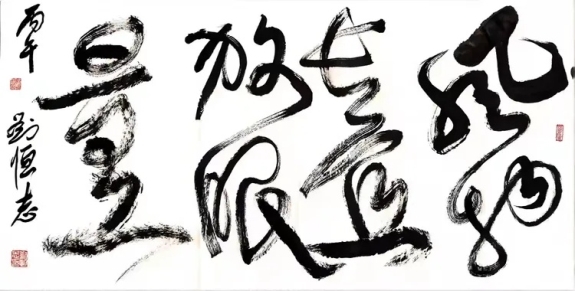 风物
长宜
放眼
量
丙午
劉恒志